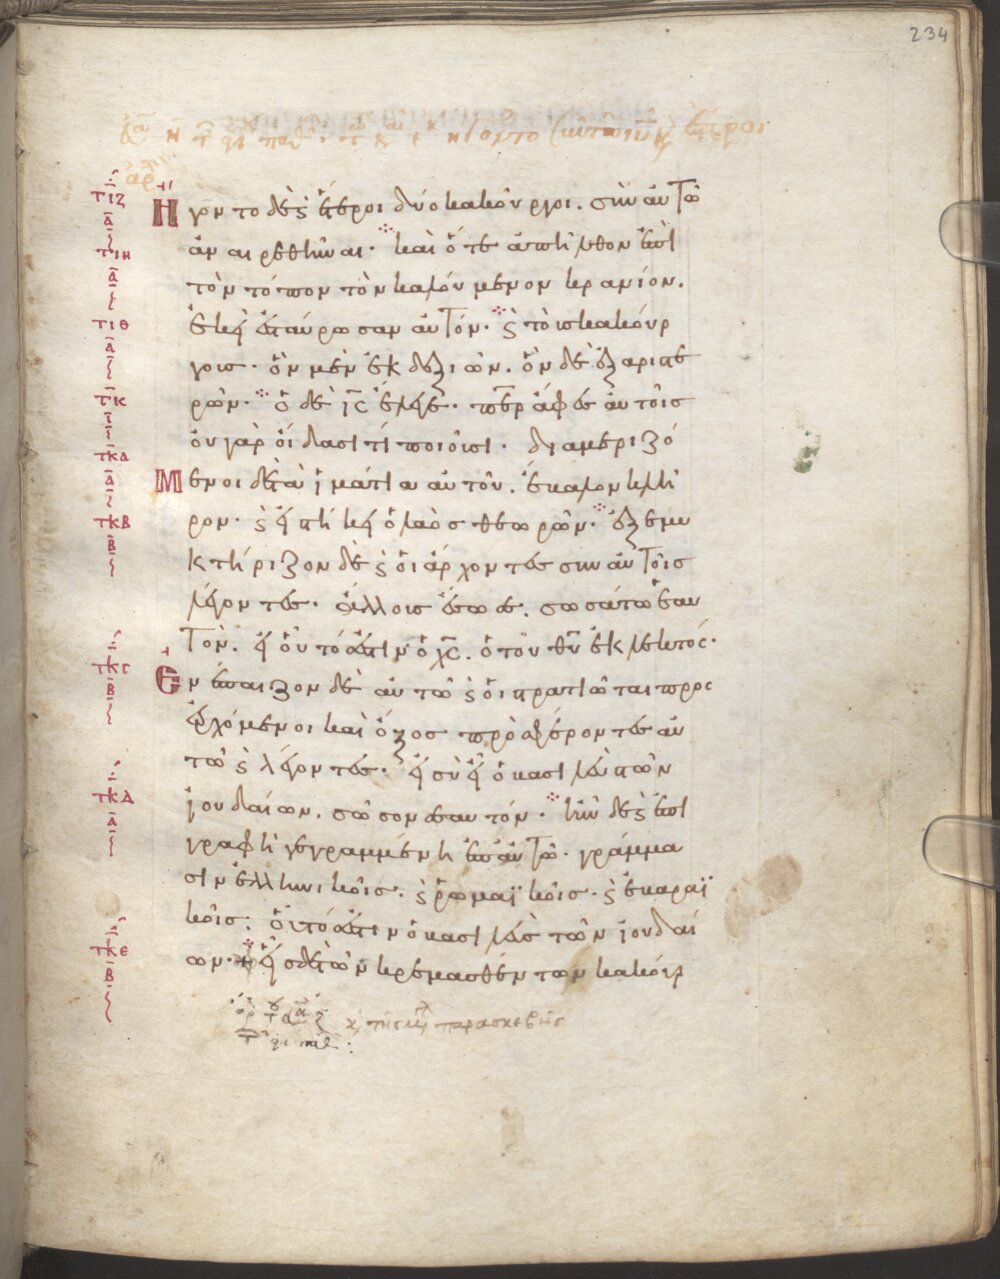 234
Ηγοντο δὲ ϛ ἕτεροι δύο κακοῦργοι. σὺν αὐτῶ
ἀναιρεθῆναι· καὶ ὅτε ἀπῆλθον ἐπὶ
τὸν τόπον τὸν καλούμενον κρανίον.
ἐκεῖ ἐσταύρωσαν αὐτόν· ϛ τοὺσ κακούρ
γουσ· ὃν μὲν ἐκ δεξιῶν. ὃν δὲ ἐξ ἀριστε
ρῶν· ὁ δὲ ι̅ς̅ ἔλεγε· π̅ε̅ρ̅ ἄφεσ αὐτοῖσ
οὐ γὰρ οἴδασι τί ποιοῦσι· διαμεριζό
Μενοι δὲ τὰ ἱμάτια αὐτοῦ. ἔβαλον κλῆ
ρον· ϛ εἱστήκει ὁ λαὸσ θεωρῶν· ἐξεμυ
κτήριζον δὲ ϛ οἱ ἄρχοντεσ σὺν αὐτοῖσ
λέγοντεσ· ἄλλουσ ἔσωσε. σωσάτω ἑαυ
τόν. εἰ οὗτόσ ἐστιν ὁ χ̅ς̅. ὁ τοῦ θ̅υ̅ ἐκλεκτός·
Ενέπαιζον δὲ αὐτῶ ϛ οἱ στρατιῶται προς
ερχόμενοι καὶ ὄξοσ προσφέροντεσ αὐ
τῶ ϛ λέγοντεσ· εἰ σὺ εἶ ὁ βασιλεὺσ τῶν
ἰουδαίων. σῶσον σεαυτόν· ἦν δὲ ϛ ἐπι
γραφὴ γεγραμμένη ἐπ' αὐτῶ· γράμμα
σιν ἑλληνικοῖσ. ϛ ῥωμαϊκοῖσ· ϛ ἑβραϊ
κοῖσ· οὗτόσ ἐστιν ὁ βασιλεὺσ τῶν ἰουδαί
ων· εἷσ δὲ τῶν κρεμασθέντων κακούρ
ϗ τῆς παρασκεβῆς
τιζ
α
τιη
α
τιθ
α
τκ
ι
τκα
α
τκβ
β
τκγ
β
τκδ
α
τκε
β